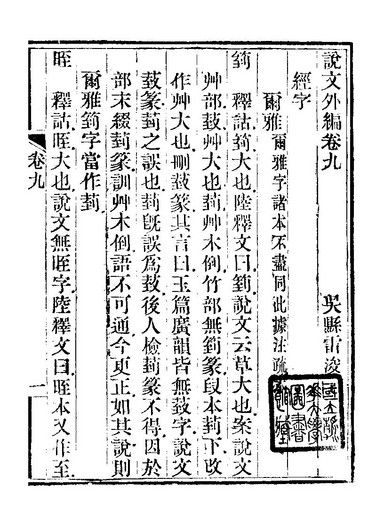 說文外編卷九
吳縣雷浚
經字
爾雅爾雅字諸本不盡同此據注疏
箌 釋詁箌大也陸釋文曰箌說文云草大也案說文
艸部菿艸木倒竹部無箌篆段本菿下改
作艸大也刪䓸篆其言曰玉篇廣韻皆無䓸字說文
䓸篆菿之誤也菿旣誤爲䓸後人檢菿篆不得因於
部末綴菿篆訓艸木倒語不可通今更正如其說則
爾雅箌字當作菿
晊 釋詁晊大也說文無晊字陸釋文曰晊本又作至
卷九
一